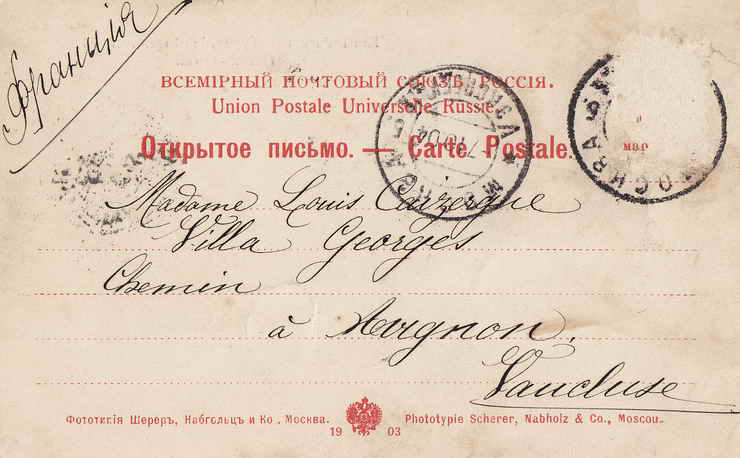 Франція
ВСЕМІРНЫЙ ПОЧТОВЫЙ СОЮЗЪ. РОССІЯ.
Union Postale Universelle Russie.
Открытое письмо. — Carte Postale.
МОСКВА
7 1904
МОСКВА
мар
Madame Louis Cavzergue
Villa Georges
Chemin
à Avignon.
Vaucluse
Фототипія Шереръ, Набгольцъ и Ко. Москва.
Phototypie Scherer, Nabholz & Co., Moscou.
19 03